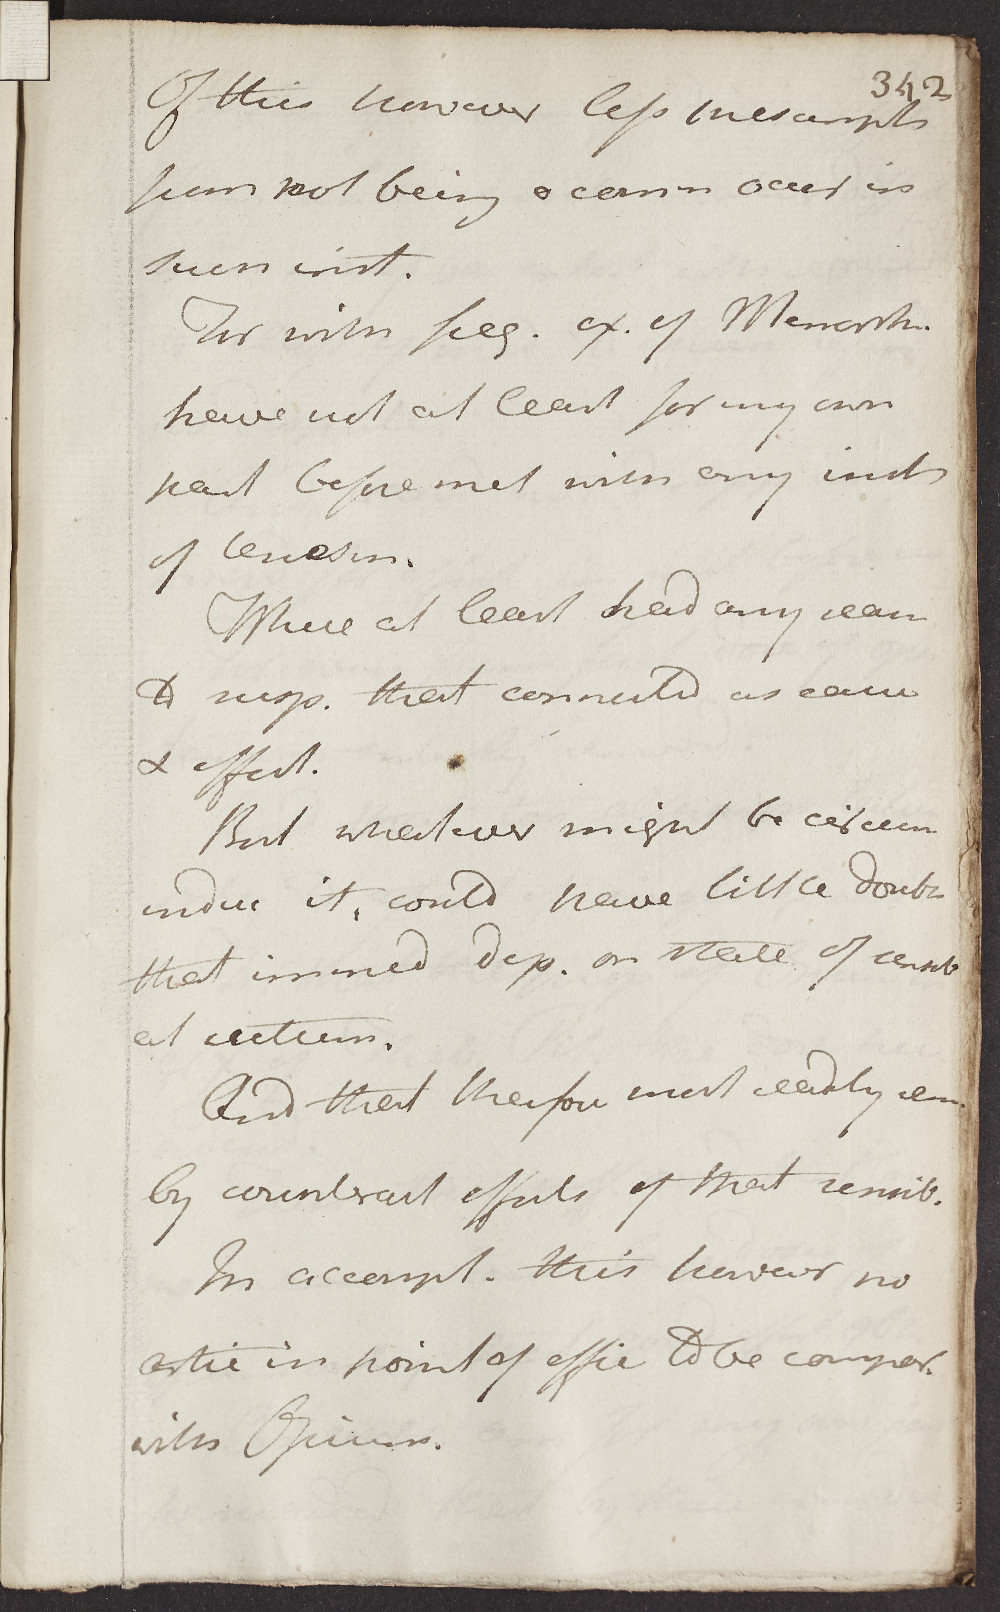 342
Of this however less presumpt
from not being a comm occur in
such inst.
For with freq. ex. of Menorrh.
have not at least for my own
part before met with any inst
of
Where at least had any reas
to susp. that connected as cause
& effect.
But whatever might be circum
induc it, could have little doubt
that immed dep. on state of sensib
at uterum.
And that therefore most readily rem
by counteract effects of that sensib.
In accompl. this however no
artic in point of effic to be compar.
with Opium.